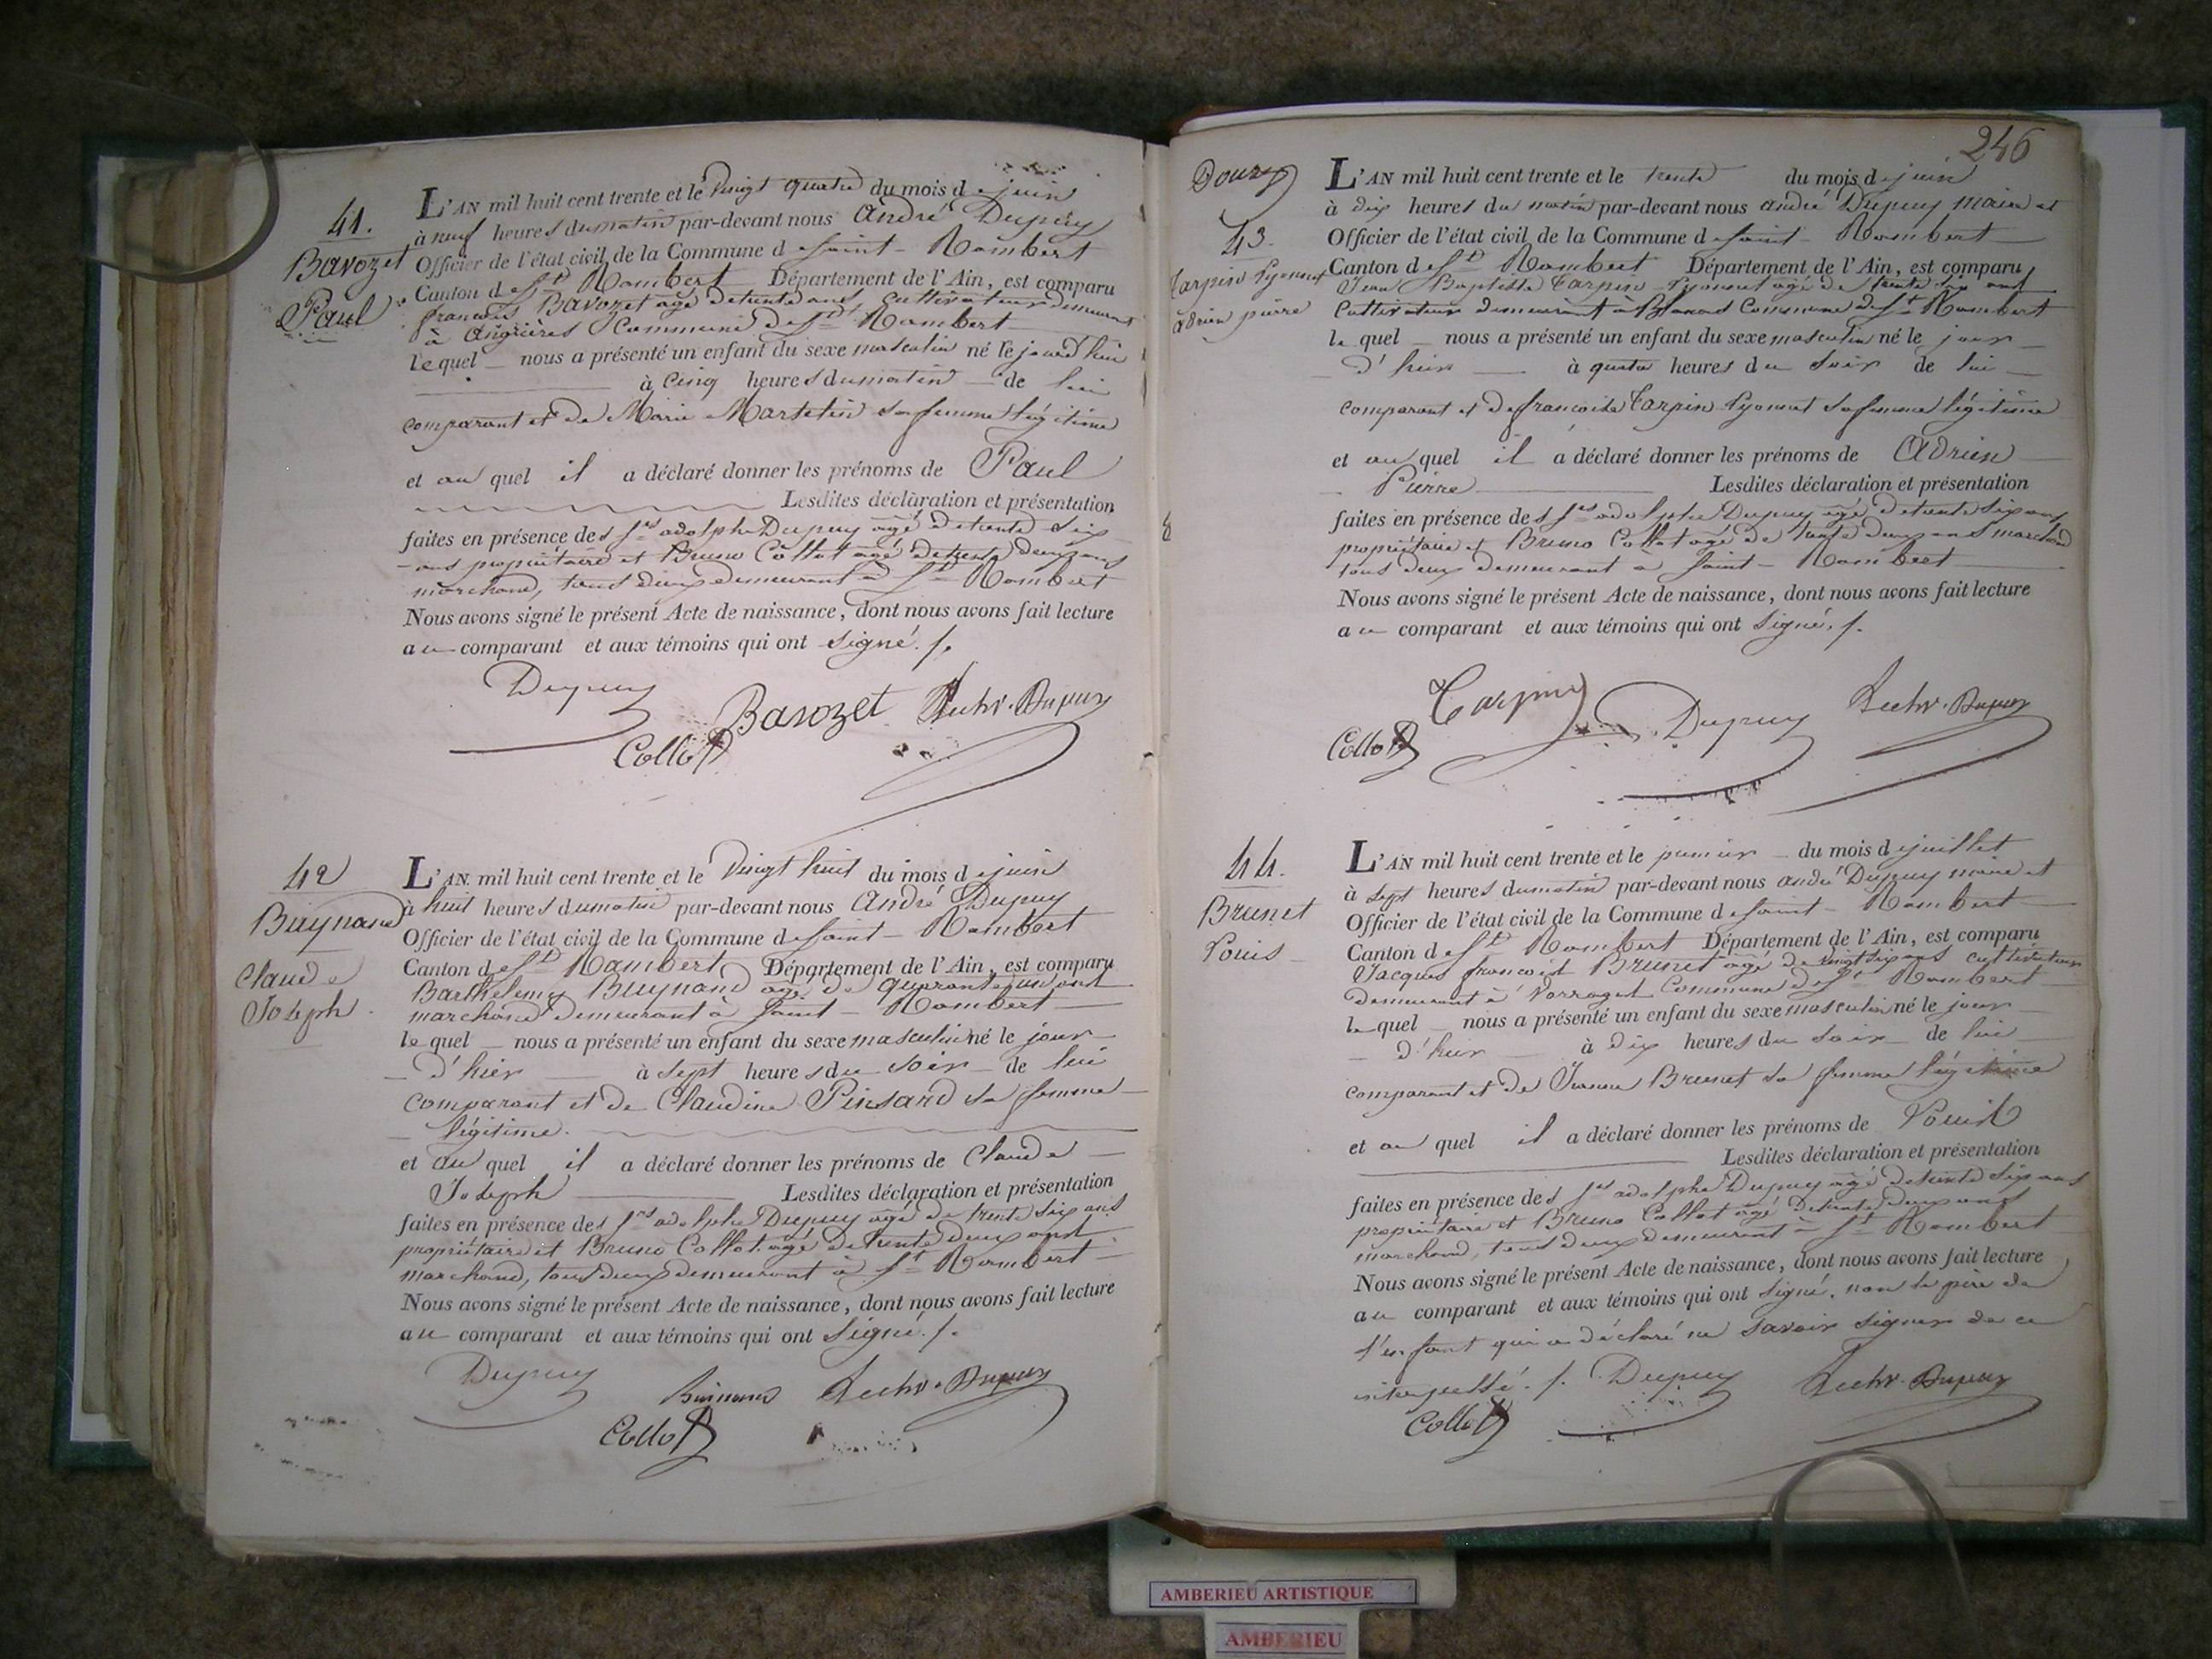 41.
Bavozet
Paul
L'AN mil huit cent trente et le Vingt quatre du mois de juin
à neuf heures du matin par-devant nous André Dupuy
Officier de l'état civil de la Commune de saint-Rambert
Canton de St Rambert Département de l'Ain, est comparu
françois Bavozet agé de trente ans, cultivateur demeurant
à Angrières Commune de St Rambert
lequel nous a présenté un enfant du sexe masculin né le jourd'hui
à cinq heures du matin de lui
comparant et de Marie Martetin sa femme légitime
et au quel il a déclaré donner les prénoms de Paul
Lesdites déclaration et présentation
faites en présence des srs adolphe Dupuy agé de trente six
ans propriétaire et Bruno Collot agé de trente deux ans
marchand, tous deux demeurant à St Rambert
Nous avons signé le présent Acte de naissance, dont nous avons fait lecture
au comparant et aux témoins qui ont signé./.
Dupuy
Bavozet
Collot
42
Buynand
Claude
Joseph
L'AN mil huit cent trente et le Vingt huit du mois de juin
à huit heures du matin par-devant nous André Dupuy
Officier de l'état civil de la Commune de saint-Rambert
Canton de St Rambert Département de l'Ain, est comparu
Barthelemy Buynand agé de quarante un ans
marchand demeurant à saint-Rambert
lequel nous a présenté un enfant du sexe masculin né le jour
d'hier à sept heures du soir de lui
comparant et de Claudine Pinsard sa femme
légitime.
et au quel il a déclaré donner les prénoms de Claude
Joseph Lesdites déclaration et présentation
faites en présence des srs adolphe Dupuy agé de trente six ans
propriétaire et Bruno Collot agé de trente deux ans
marchand, tous deux demeurant à St Rambert
Nous avons signé le présent Acte de naissance, dont nous avons fait lecture
au comparant et aux témoins qui ont signé./.
Dupuy
Collot
246
43.
Tarpin Lyonnet
adrien pierre
L'AN mil huit cent trente et le trente du mois de juin
à dix heures du matin par-devant nous andré Dupuy maire et
Officier de l'état civil de la Commune de saint-Rambert
Canton de St Rambert Département de l'Ain, est comparu
Jean Baptiste Tarpin Lyonnet agé de trente six ans
Cultivateur demeurant à Commune de St Rambert
lequel nous a présenté un enfant du sexe masculin né le jour
d'hier à quatre heures du soir de lui
comparant et de francoise Tarpin Lyonnet sa femme légitime
et au quel il a déclaré donner les prénoms de Adrien
Pierre Lesdites déclaration et présentation
faites en présence des srs adolphe Dupuy agé de trente six ans
propriétaire et Bruno Collot agé de trente deux ans marchand
tous deux demeurant à saint-Rambert
Nous avons signé le présent Acte de naissance, dont nous avons fait lecture
au comparant et aux témoins qui ont signé./.
Tarpin
Collot
Dupuy
44.
Brunet
Louis
L'AN mil huit cent trente et le premier du mois de juillet
à sept heures du matin par-devant nous andré Dupuy maire et
Officier de l'état civil de la Commune de saint-Rambert
Canton de St Rambert Département de l'Ain, est comparu
Jacques francois Brunet agé de vingt six ans cultivateur
demeurant à Vorraget Commune de St Rambert
lequel nous a présenté un enfant du sexe masculin né le jour
d'hier à dix heures du soir de lui
comparant et de Brunet sa femme légitime
et au quel il a déclaré donner les prénoms de Louis
Lesdites déclaration et présentation
faites en présence des srs adolphe Dupuy agé de trente six ans
propriétaire et Bruno Collot agé de trente deux ans
marchand, tous deux demeurant à St Rambert
Nous avons signé le présent Acte de naissance, dont nous avons fait lecture
au comparant et aux témoins qui ont signé, non le père de
l'enfant qui a déclaré ne savoir signer de ce
interpellé./. Dupuy
Collot
AMBERIEU ARTISTIQUE
AMBERIEU